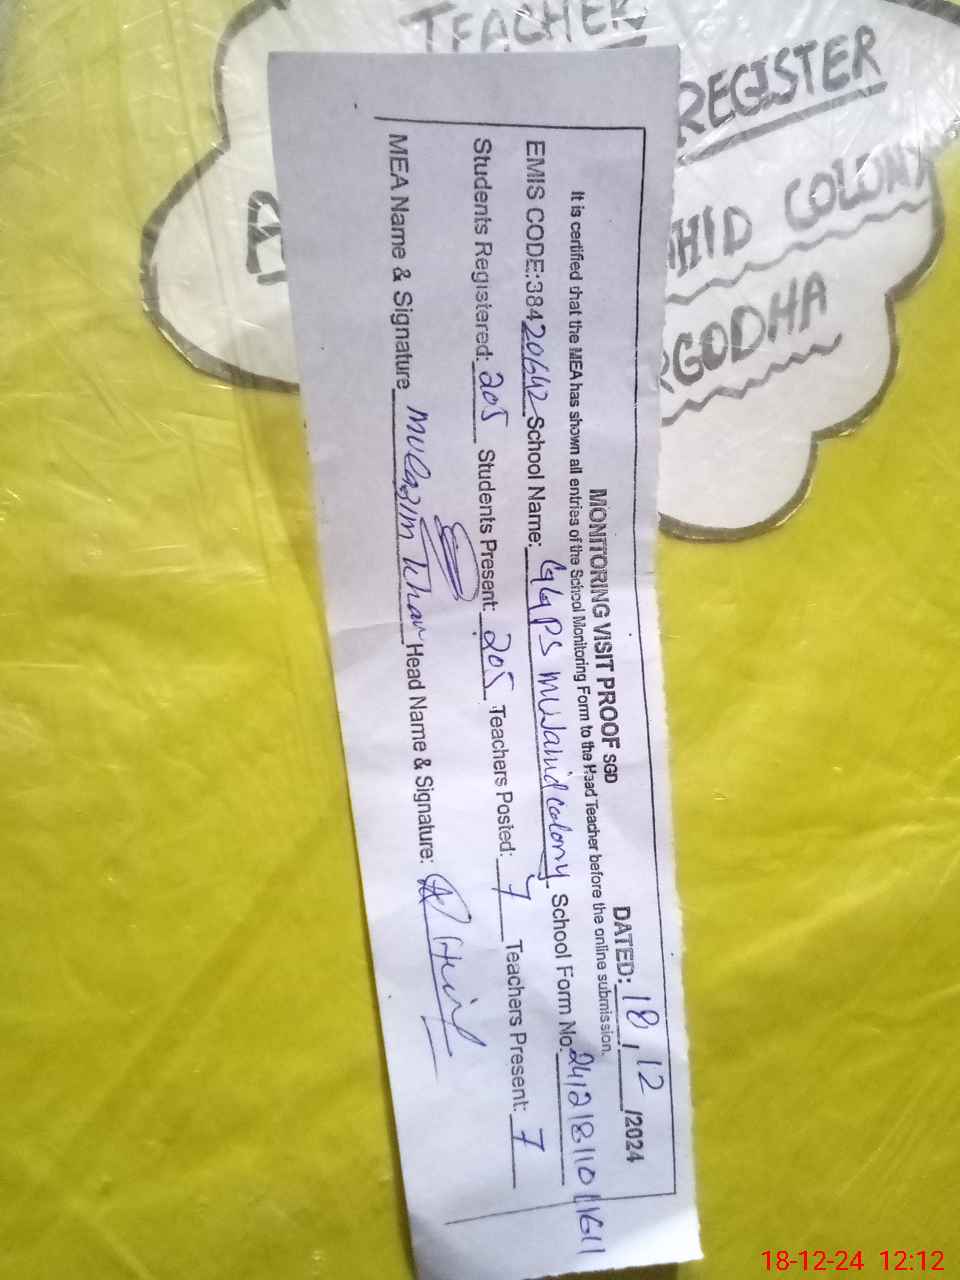 TEACHER
REGISTER
HID COLONY
RGODHA
MONITORING VISIT PROOF SGD DATED: 18/12/2024
It is certified that the MEA has shown all entries of the School Monitoring Form to the Head Teacher before the online submission.
EMIS CODE:38420642 School Name: GGPS Muwahid colony School Form No:
Students Registered: 205 Students Present: 205 Teachers Posted: 7 Teachers Present: 7
MEA Name & Signature Mulazim Head Name & Signature:
18-12-24 12:12